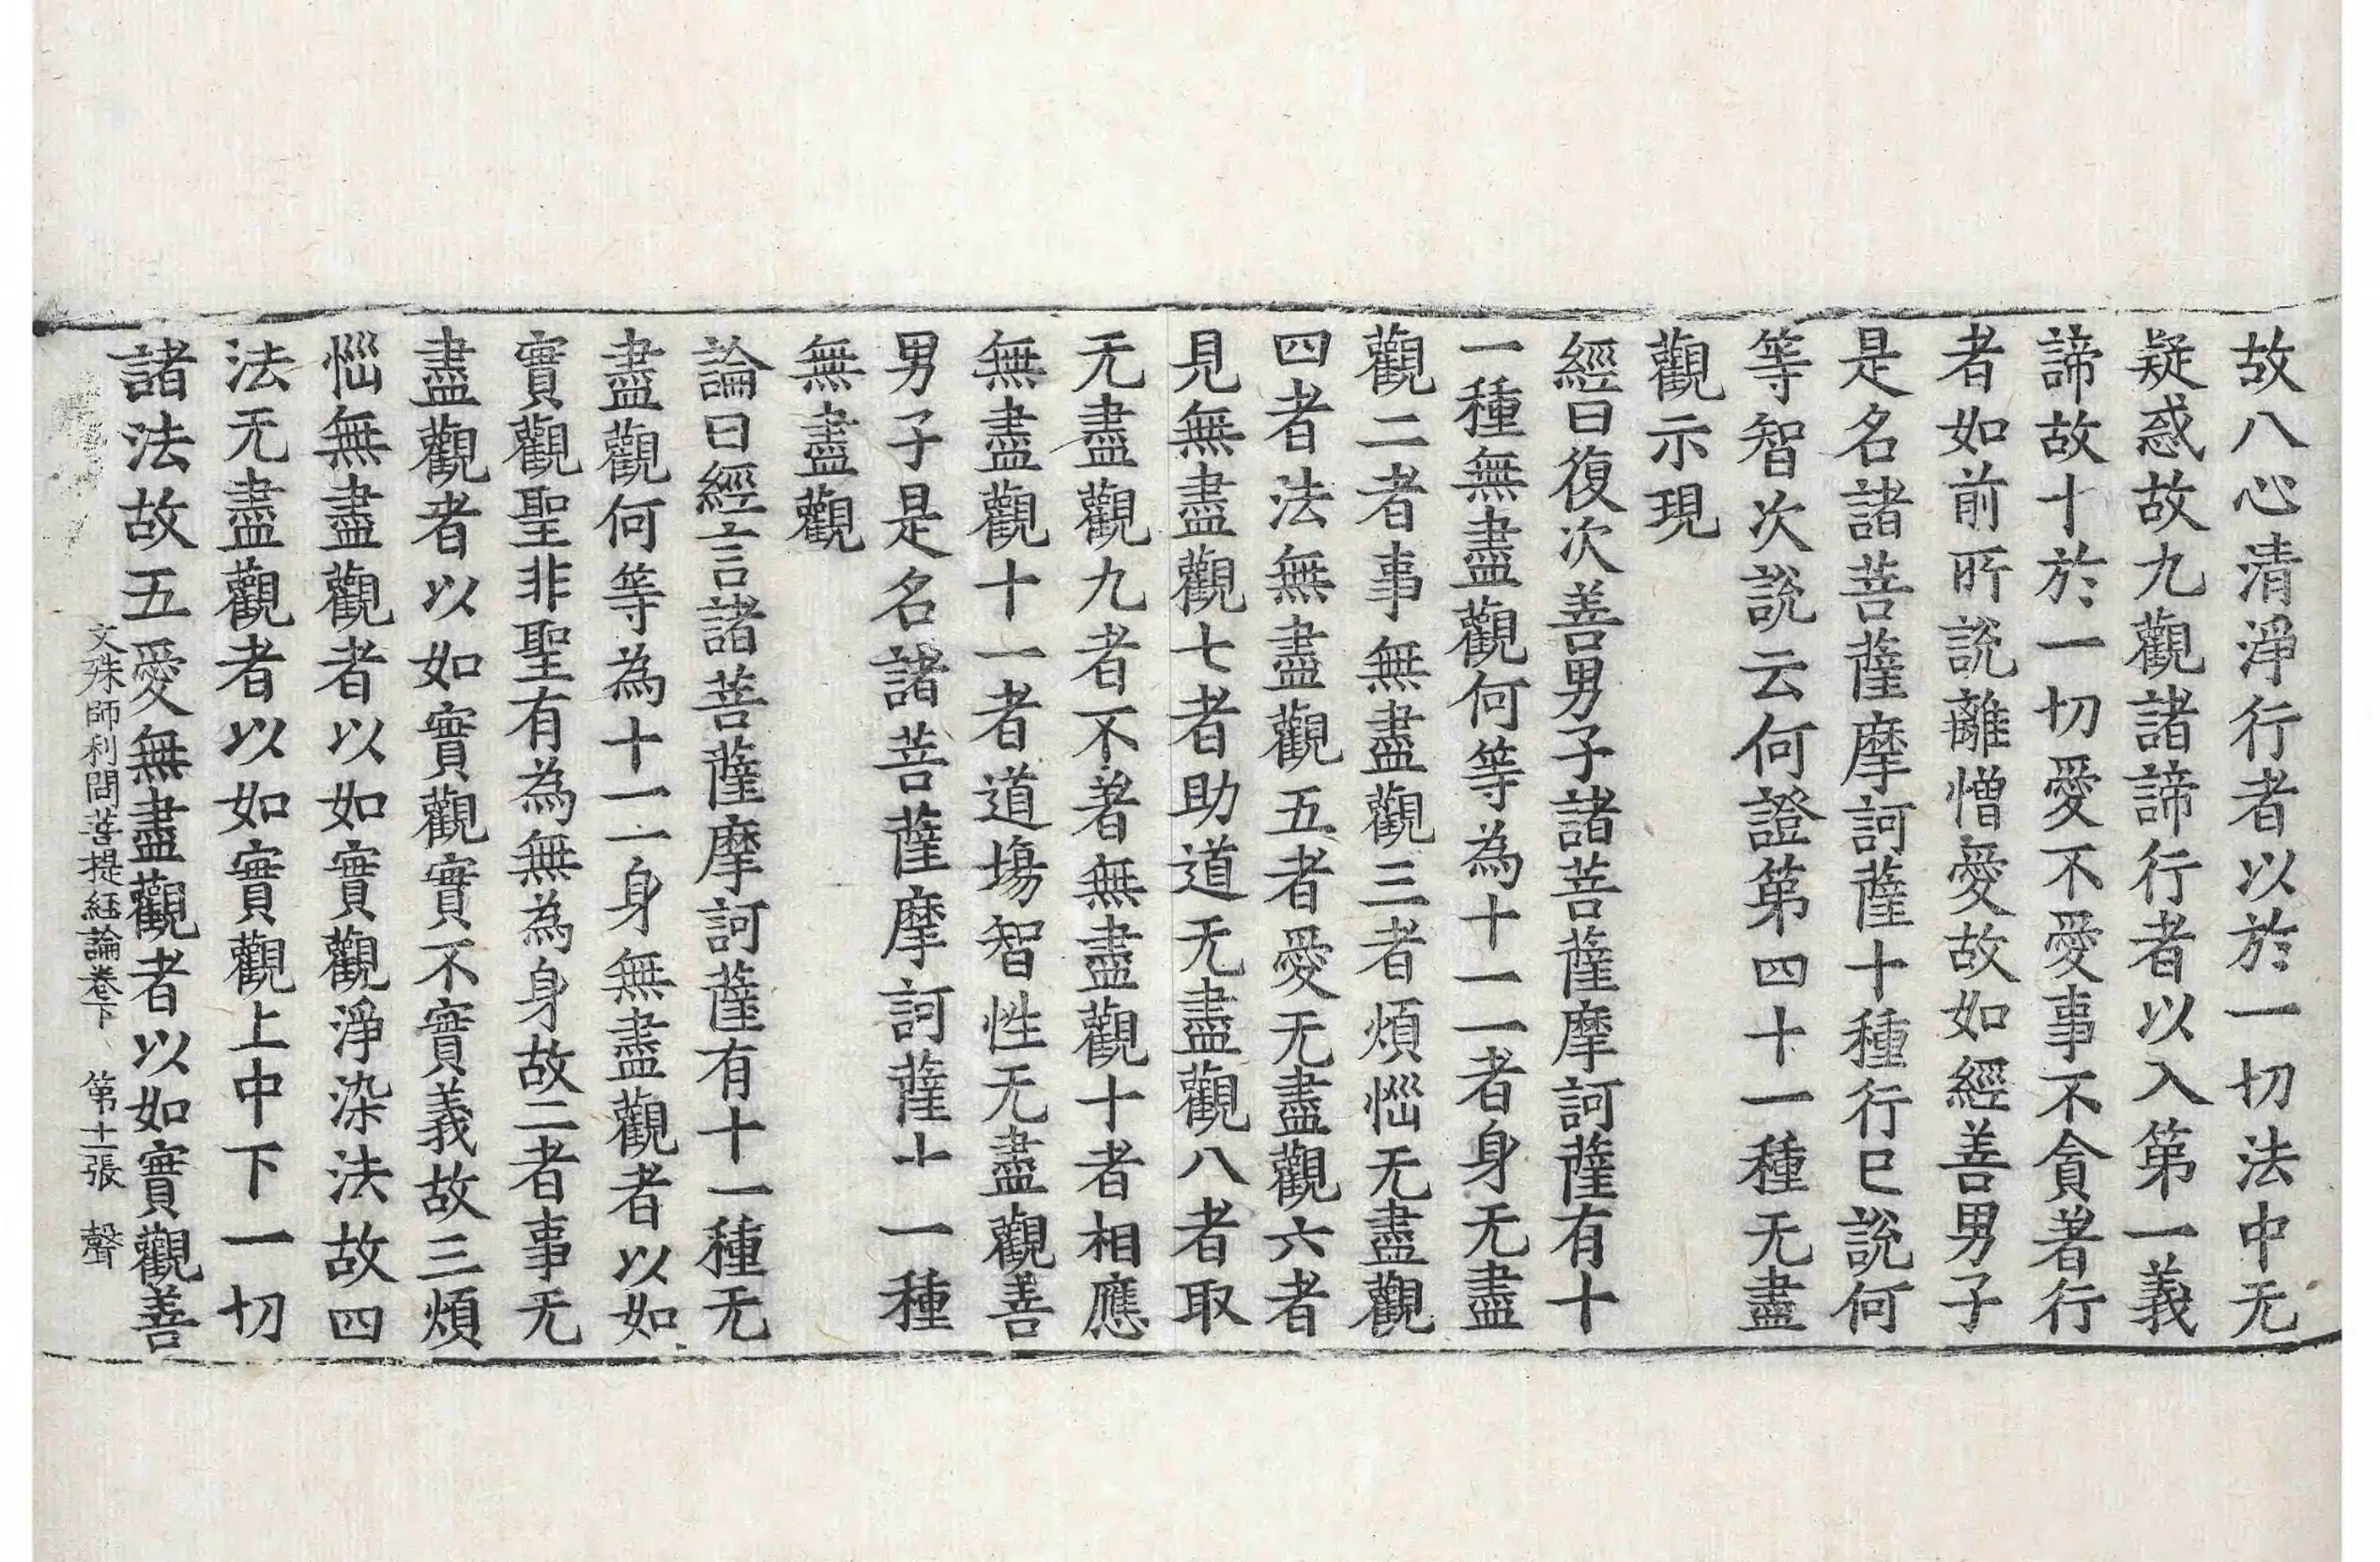 故八心清淨行者以於一切法中无
疑惑故九觀諸諦行者以入第一義
諦故十於一切愛不愛事不貪著行
者如前所說離憎愛故如經善男子
是名諸菩薩摩訶薩十種行已說何
等智次說云何證第四十一種无盡
觀示現
經曰復次善男子諸菩薩摩訶薩有十
一種無盡觀何等為十一一者身无盡
觀二者事無盡觀三者煩惱无盡觀
四者法無盡觀五者愛无盡觀六者
見無盡觀七者助道无盡觀八者取
无盡觀九者不著無盡觀十者相應
無盡觀十一者道場智性无盡觀善
男子是名諸菩薩摩訶薩十一種
無盡觀
論曰經言諸菩薩摩訶薩有十一種无
盡觀何等為十一一身無盡觀者以如
實觀聖非聖有為無為身故二者事无
盡觀者以如實觀實不實義故三煩
惱無盡觀者以如實觀淨染法故四
法无盡觀者以如實觀上中下一切
諸法故五愛無盡觀者以如實觀善
文殊師利問菩提經論卷下 第十二張 聲